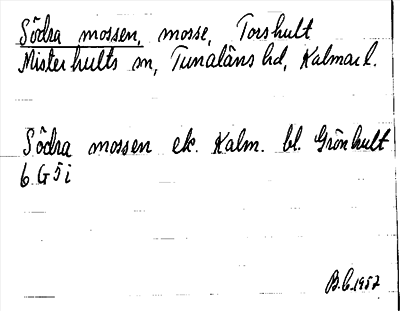 Södra mossen, mosse, Torshult
Misterhults sn, Tunaläns hd, Kalmar l.
Södra mossen ek. Kalm. bl. Grönhult
6 G 5 i
B.C. 1957